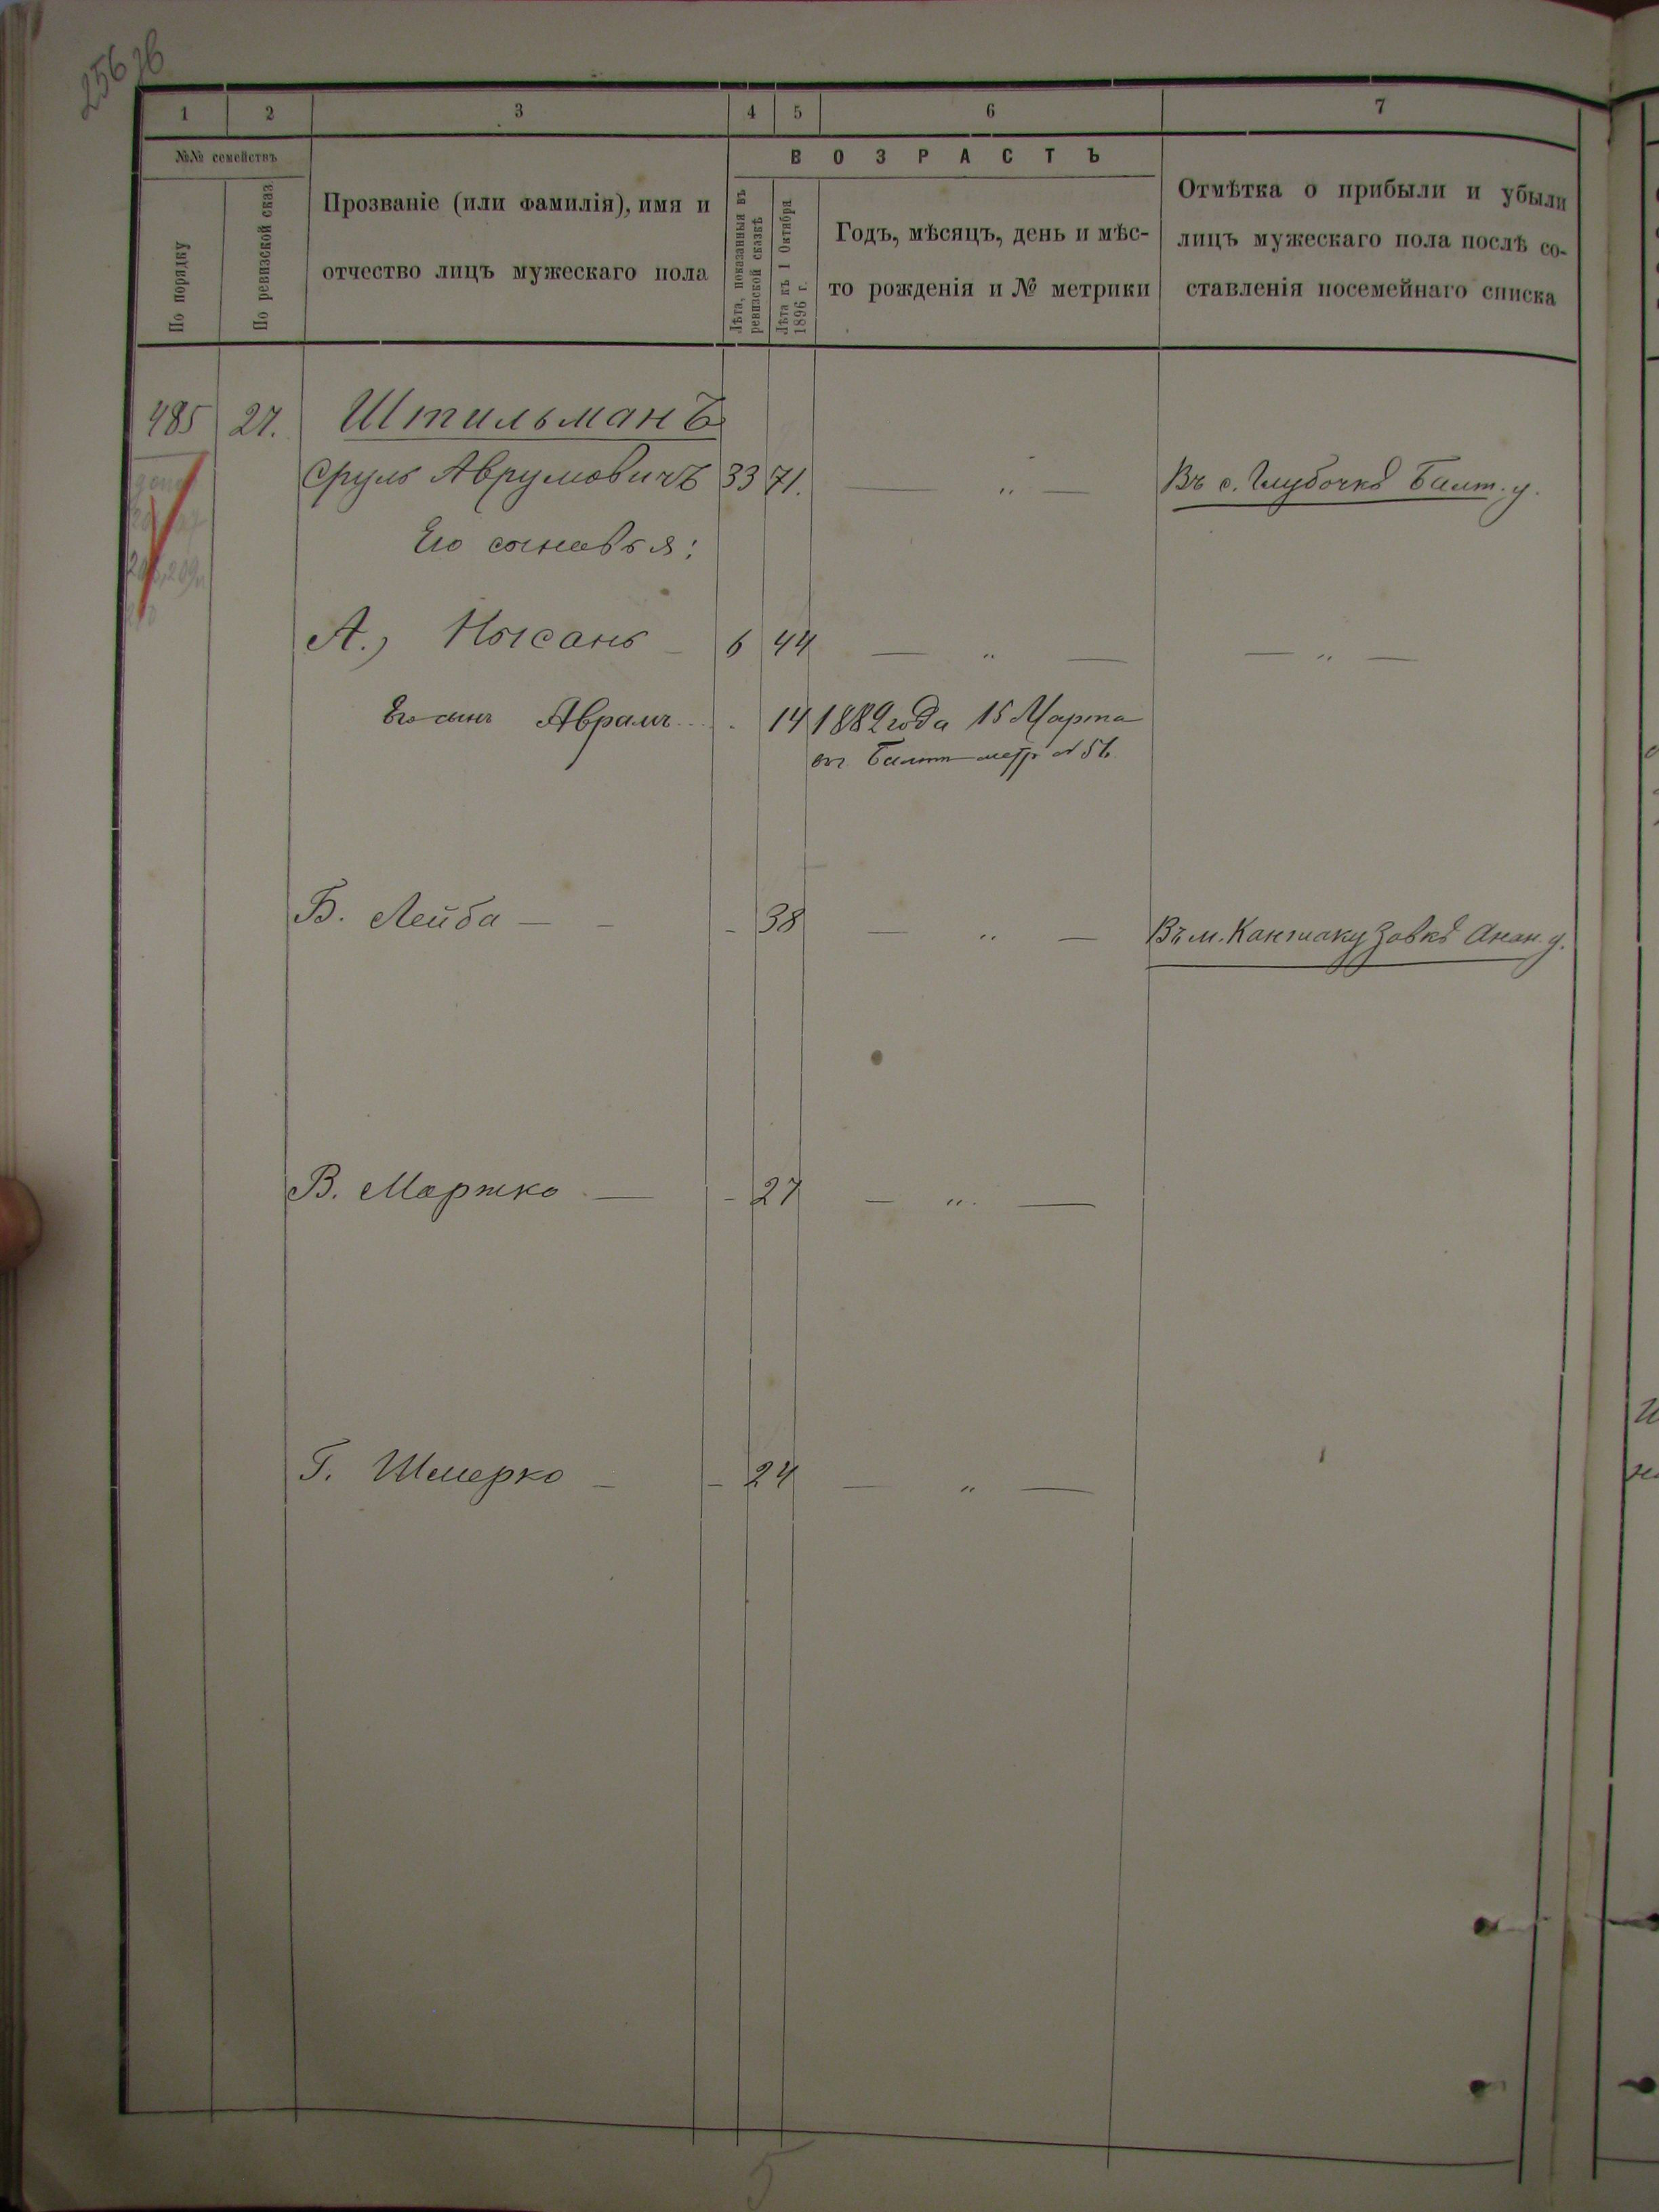 256 об
1 2 3 4 5 6 7
№№ семействъ
По порядку
По ревизской сказ.
Прозваніе (или фамилія), имя и
отчество лицъ мужескаго пола
ВОЗРАСТЪ
Лѣта, показанныя въ
ревизской сказкѣ
Лѣта къ 1 Октября
1896 г.
Годъ, мѣсяцъ, день и мѣс-
то рожденія и № метрики
Отмѣтка о прибыли и убыли
лицъ мужескаго пола послѣ со-
ставленія посемейнаго списка
485 27. Штильманъ
Сруль Аврумовичъ 33 71. — „ — Въ с. Глубочкѣ Балт. у.
Его сыновья:
А.) Нысань — 6 44 — „ — — „ —
Его сынъ Аврамъ 14 1882 года 15 Марта
въ Балт метр № 56
Б. Лейба — — - 38 — „ — Въ м. Кантакузовкѣ Анан. у.
В. Мортко — - 27 — „ —
Г. Шмерко — - 24 — „ —
5